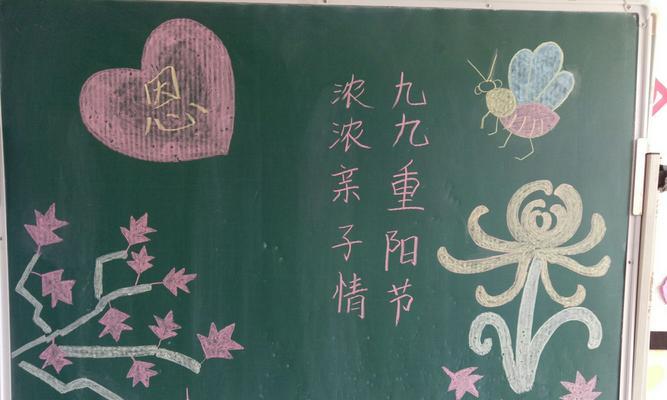 恩
九九重阳节
浓浓亲子情